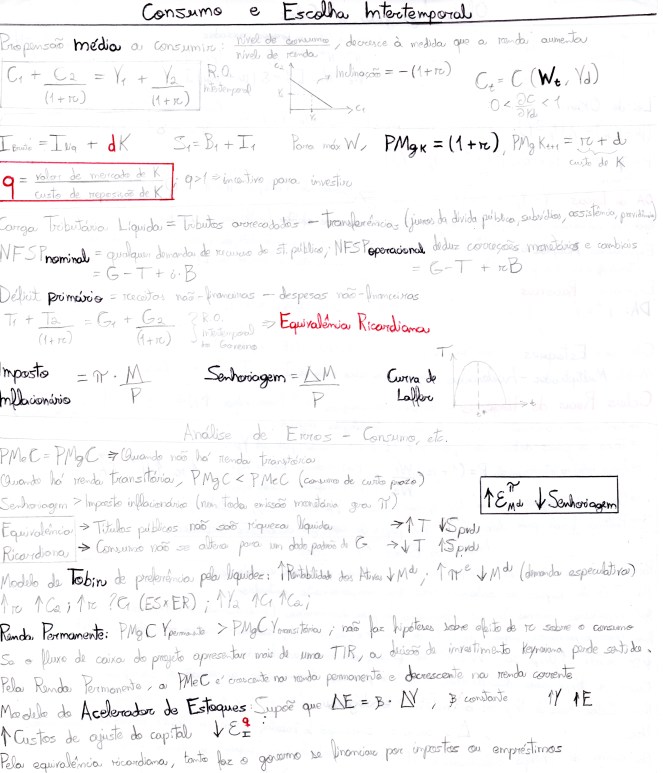 Consumo e Escolha Intertemporal
Propensão média a consumir: nível de consumo / nível de renda, decresce à medida que a renda aumenta
C₁ + C₂/(1+r) = Y₁ + Y₂/(1+r) R.O. intertemporal C₂ Y₁ C₁ Inclinação = -(1+r) Cₜ = C (Wₜ, Yd)
0 < ∂C/∂Yd < 1
I Bruto = I Liq + dK S₁ = B₁ + I₁ Para máx W, PMgK = (1+r), PMgKₜ₊₁ = r + d
custo de K
q = valor de mercado de K / custo de reposição de K; q>1 = incentivo para investir
Carga Tributária Líquida = Tributos arrecadados - transferências (juros da dívida pública, subsídios, assistência, previdência)
NFSP nominal = qualquer demanda de recursos do st público; NFSP operacional deduz correções monetárias e cambiais
= G - T + i·B = G - T + rB
Déficit primário = receitas não-financeiras - despesas não-financeiras
T₁ + T₂/(1+r) = G₁ + G₂/(1+r) } R.O. intertemporal do Governo ⇒ Equivalência Ricardiana
Imposto Inflacionário = π · M/P Senhoriagem = ΔM/P Curva de Laffer T t* t
Análise de Erros - Consumo, etc.
PMeC = PMgC ⇒ Quando não há renda transitória
Quando há renda transitória, PMgC < PMeC (consumo de curto prazo)
Senhoriagem > Imposto inflacionário (nem toda emissão monetária gera π)
↑ε π Md ↓ Senhoriagem
Equivalência → Títulos públicos não são riqueza líquida → ↑T ↓Spvd
Ricardiana → Consumo não se altera para um dado padrão de G → ↓T ↑Spvd
Modelo de Tobin de preferência pela liquidez: ↑Rentabilidade dos Ativos ↓Mᵈ; ↑πᵉ ↓Mᵈ (demanda especulativa)
↑r ↑C₂; ↑r ?C₁ (ESxER); ↑Y₂ ↑C₁ ↑C₂;
Renda Permanente: PMgC Ypermanente > PMgC Ytransitória; não faz hipóteses sobre efeito de r sobre o consumo
Se o fluxo de caixa do projeto apresentar mais de uma TIR, a decisão de investimento keynesiana perde sentido.
Pela Renda Permanente, a PMeC é crescente na renda permanente e decrescente na renda corrente
Modelo do Acelerador de Estoques: Supõe que ΔE = B · ΔY, B constante ↑Y ↑E
↑Custos de ajuste do capital ↓ε q I
Pela equivalência ricardiana, tanto faz o governo se financiar por impostos ou empréstimos